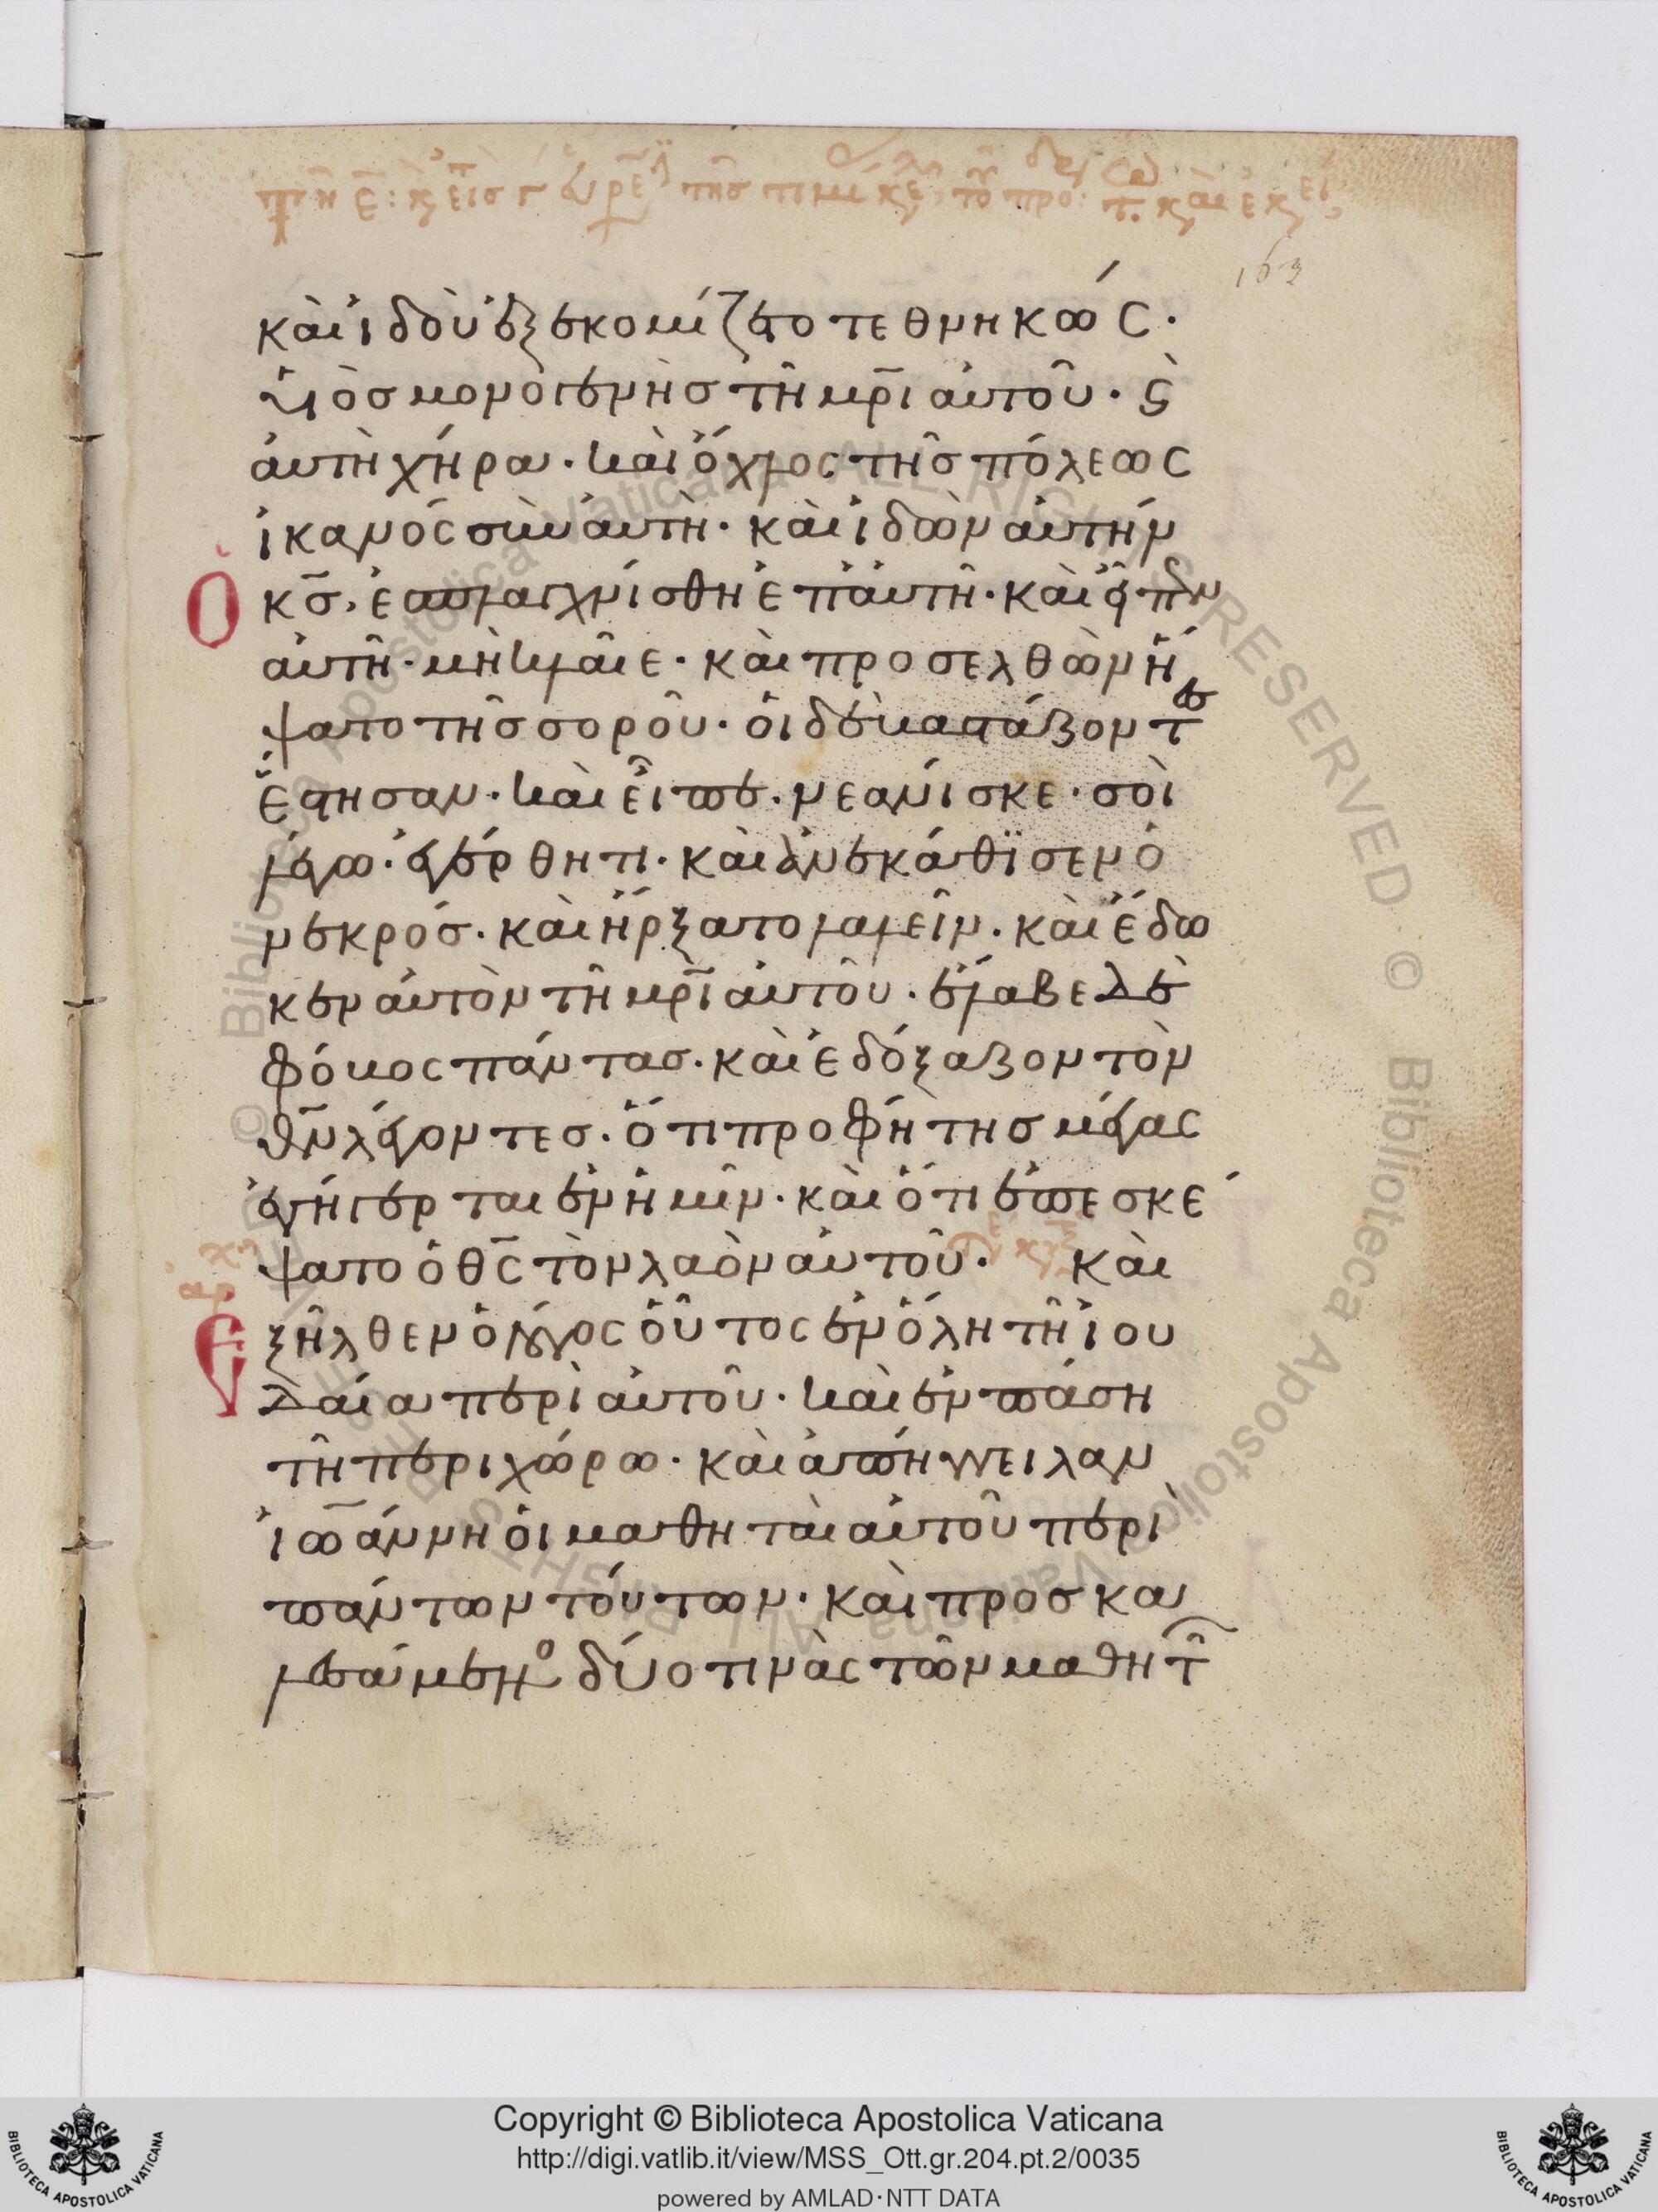 163
καὶ ἰδοὺ ἐξεκομίζετο τεθνηκώς·
υἱὸσ μονογενὴσ τῆ μρ̅ι αὐτοῦ· ϛ̀
αὐτὴ χήρα· καὶ ὄχλος τῆσ πόλεως
ἱκανὸς σὺν αὐτῆ· καὶ ἰδὼν αὐτήν
Ὁ κσ̅, ἐσπλαγχνίσθη ἐπ' αὐτῆ· καὶ εἶπεν
αὐτῆ· μὴ κλαῖε· καὶ προσελθὼν ἥ
ψατο τῆσ σοροῦ· οἱ δὲ βαστάζοντ
ἔστησαν· καὶ εἶπε· νεανίσκε· σοὶ
λέγω· ἐγέρθητι· καὶ ἀνεκάθϊσεν ὁ
νεκρόσ· καὶ ἤρξατο λαλεῖν· καὶ ἔδω
κεν αὐτὸν τῆ μρ̅ι αὐτοῦ· ἔλαβε δὲ
φόβος πάντασ· καὶ ἐδόξαζον τὸν
θν̅ λέγοντεσ· ὅτι προφήτησ μέγας
ἐγήγερται ἐν ἡμῖν· καὶ ὅτι ἐπεσκέ
ψατο ὁ θς̅ τὸν λαὸν αὐτοῦ· καὶ
Εξῆλθεν ὁ λόγος οὗτος ἐν ὅλη τῆ ἰου
δαία περὶ αὐτοῦ· καὶ ἐν πάση
τῆ περιχώρω· καὶ ἀπήγγειλαν
ἰω̅άννη οἱ μαθηταὶ αὐτοῦ περὶ
πάντων τούτων· καὶ προσκα
λεσάμενο δύο τινὰς τῶν μαθητ
Copyright © Biblioteca Apostolica Vaticana
http://digi.vatlib.it/view/MSS_Ott.gr.204.pt.2/0035
powered by AMLAD·NTT DATA